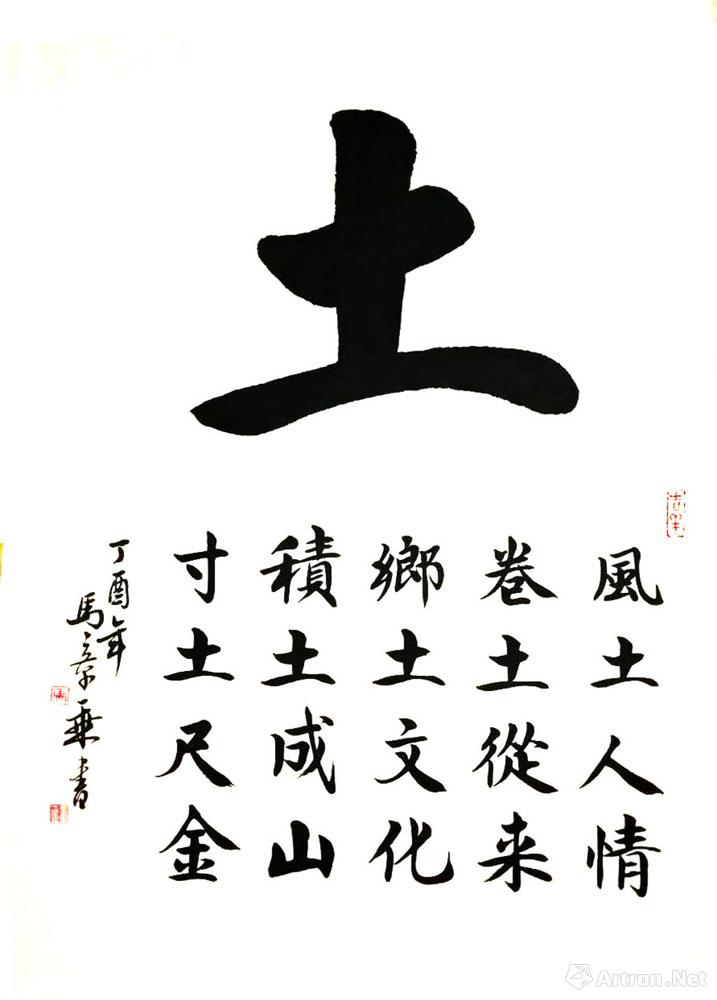 土
風土人情
卷土從来
鄉土文化
積土成山
寸土尺金
丁酉年
馬景乘書
Artron.Net